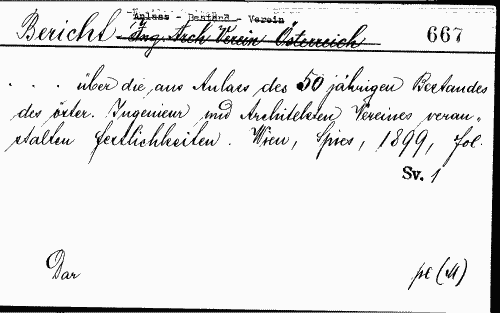 Anlass - Bestand - Verein
Bericht Ing. Arch Verein Österreich 667
. . . . über die aus Anlaes des 50 jährigen Bestandes
des öster. Ingenieur und Architekten Vereines veran=
stalten festlichkeiten. Wien, Spies, 1899, fol.
Sv. 1
Dar pe (M)